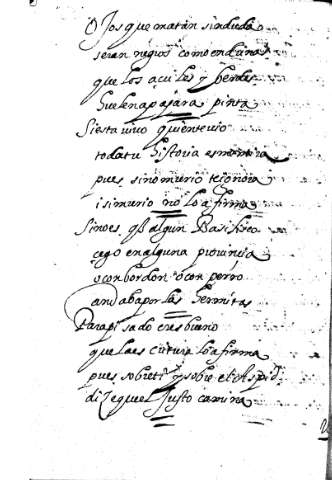 Ojos que matan sin duda
seran negros como endrinas
que los açules y berdes
huelen a pajara pinta
si esta vivo quien te vio
toda tu historia es mentira
pues si no murio te ignora
i si murio no lo afirma
Si no es q̃ algun Basilisco
cego en alguna provincia
o con bordon o con perro
andaba por las hermitas
Para pisado eres bueno
que la escritura lo afirma
pues sobre ti y sobre el Aspid
diçe que el Justo camina